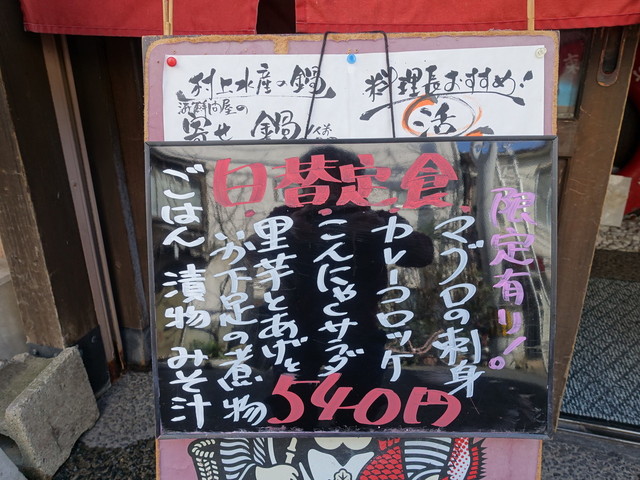 村上水産の鍋
海鮮問屋の
寄せ鍋
料理長おすすめ!
活
日替定食
限定有り!。
マグロの刺身
カレーコロッケ
こんにゃくサラダ
里芋とあげと
お下足の煮物
ごはん 漬物 みそ汁
540円